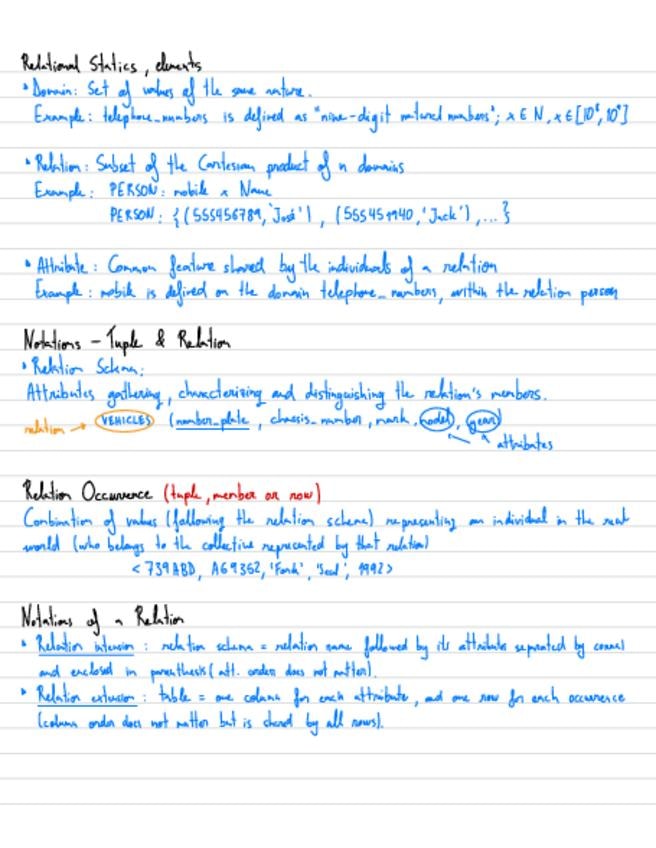 Relational Statics, elements
• Domain: Set of values of the same nature.
Example: telephone_numbers is defined as "nine-digit natural numbers"; x ∈ N, x ∈ [10⁸, 10⁹]
• Relation: Subset of the Cartesian product of n domains
Example: PERSON: mobile x Name
PERSON: {(555456789, 'José'), (555454940, 'Jack'),...}
• Attribute: Common feature shared by the individuals of a relation
Example: mobile is defined on the domain telephone_numbers, within the relation person
Notations - Tuple & Relation
• Relation Schema:
Attributes gathering, characterizing and distinguishing the relation's members.
relation → VEHICLES (number_plate, chassis_number, mark, model, year)
attributes
Relation Occurrence (tuple, member or row)
Combination of values (following the relation scheme) representing an individual in the real
world (who belongs to the collective represented by that relation)
<739ABD, A69352, 'Ford', 1992>
Notations of a Relation
• Relation intension: relation schema = relation name followed by its attributes separated by commas
and enclosed in parenthesis (att. order does not matter).
• Relation extension: table = one column for each attribute, and one row for each occurrence
(column order does not matter but is shared by all rows).